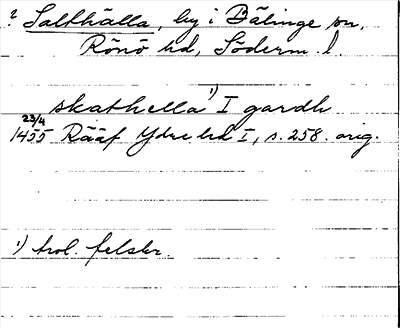 ? Salthälla, by i Bälinge sn,
Rönö hd, Söderm. l.
skathella ¹) I gardh
23/4
1455 Rääf Ydre hd I, s. 258. orig.
¹) trol. felskr.